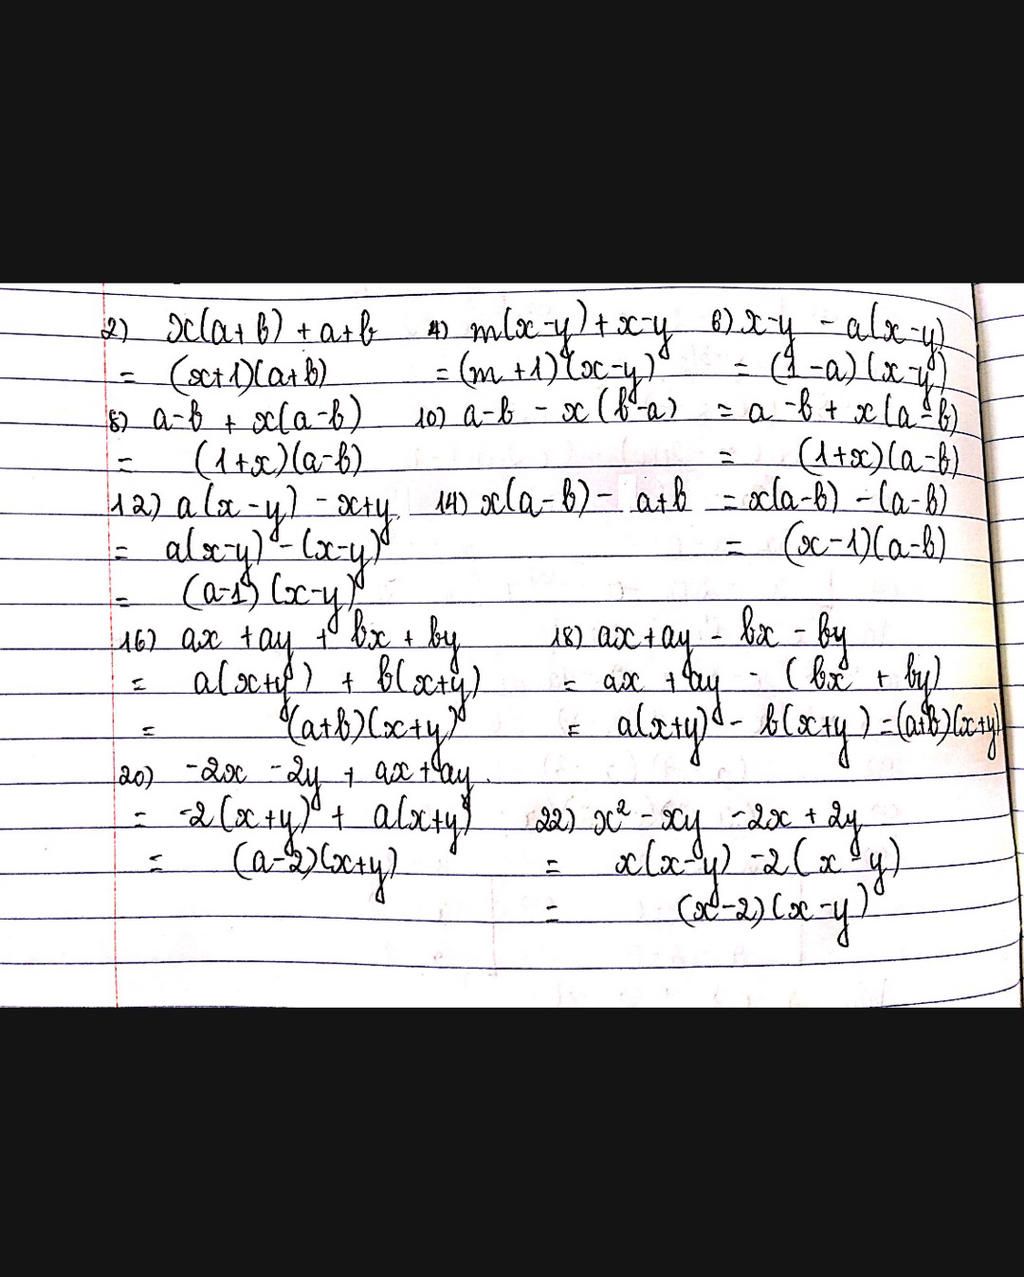 2) x(a+b) + a+b 4) m(x-y) + x-y 6) x-y - a(x-y)
= (x+1)(a+b) = (m+1)(x-y) = (1-a)(x-y)
8) a-b + x(a-b) 10) a-b - x(b-a) = a-b + x(a-b)
= (1+x)(a-b) = (1+x)(a-b)
12) a(x-y) - x+y 14) x(a-b) - a+b = x(a-b) - (a-b)
= a(x-y) - (x-y) = (x-1)(a-b)
= (a-1)(x-y)
16) ax + ay + bx + by 18) ax + ay - bx - by
= a(x+y) + b(x+y) = ax + ay - (bx + by)
= (a+b)(x+y) = a(x+y) - b(x+y) = (a+b)(x+y)
20) -2x - 2y + ax + ay
= -2(x+y) + a(x+y) 22) x² - xy - 2x + 2y
= (a-2)(x+y) = x(x-y) - 2(x-y)
= (x-2)(x-y)